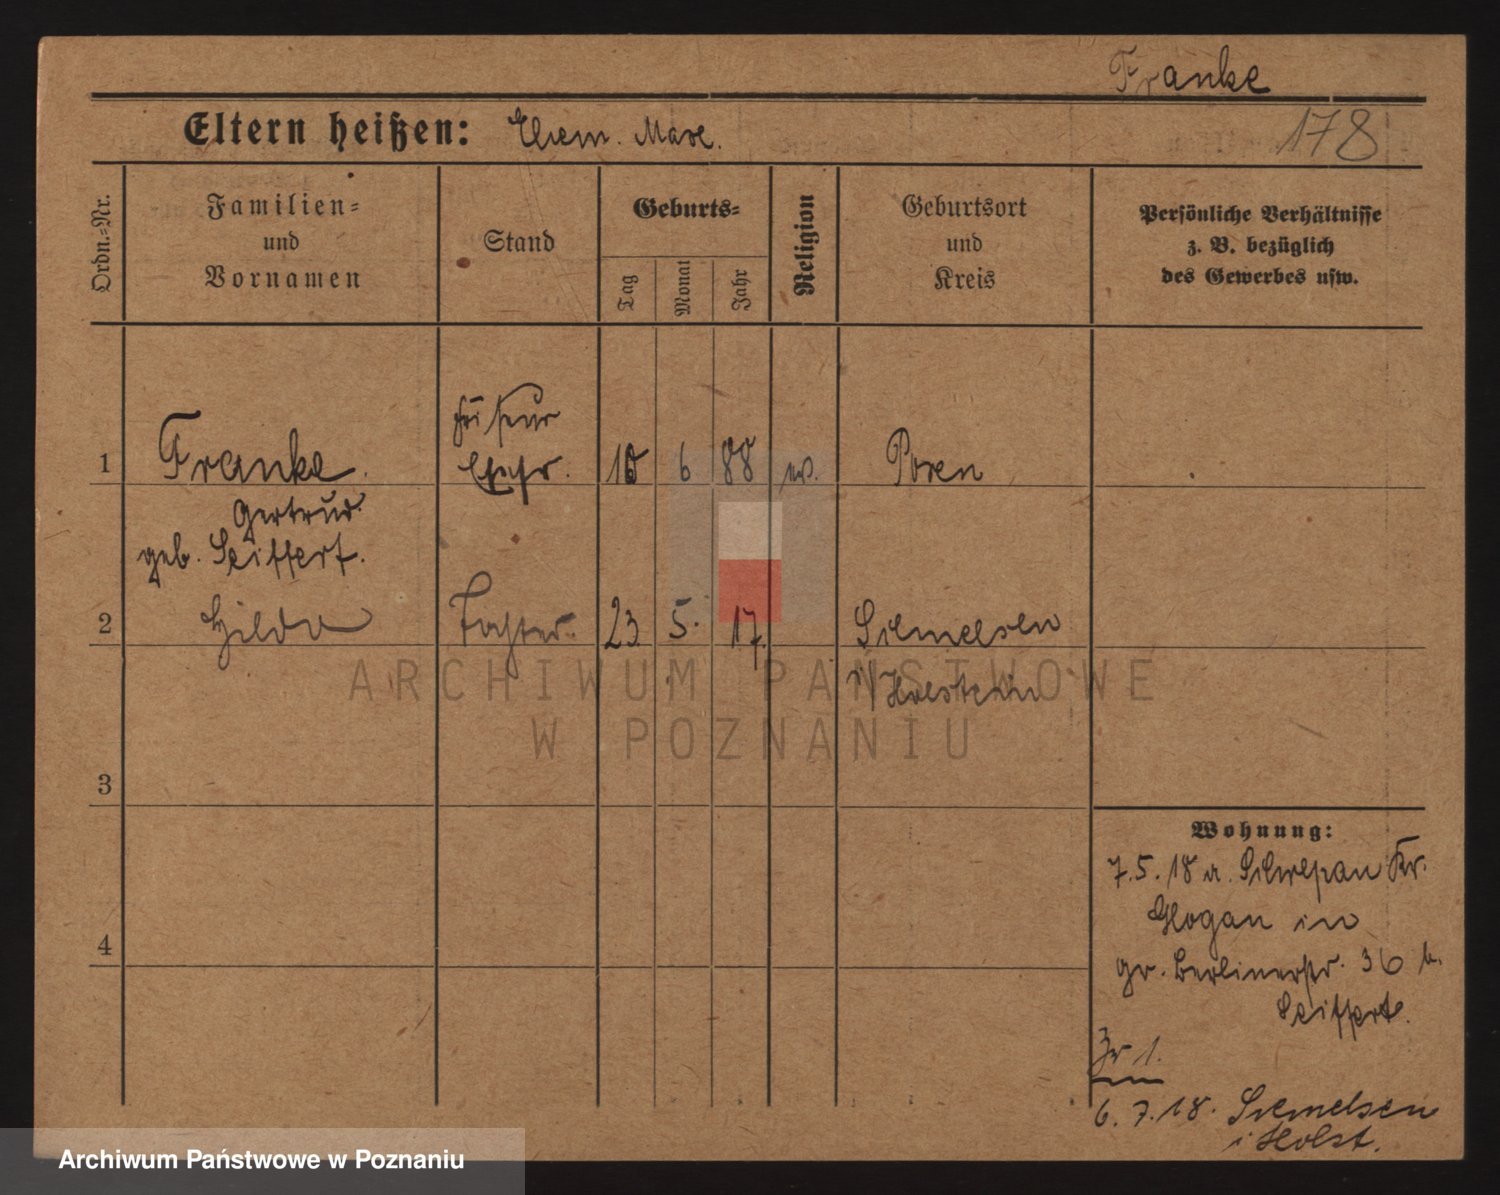 Franke
Eltern heißen: Ehem. Max.
178
Ordn.-Nr.
Familien-
und
Vornamen
Stand
Geburts-
Tag
Monat
Jahr
Religion
Geburtsort
und
Kreis
Persönliche Verhältnisse
z. B. bezüglich
des Gewerbes usw.
1
Franke.
Friseur
Ehefr.
6
88
ev.
Posen
Gertrud
geb. Seiffert.
2
Hilda
Tochter
23
5.
17.
i/Holstein
3
4
Wohnung:
7.5.18 a. Kr.
Glogau in
gr. Berlinerstr. 36 b.
Seiffert.
Zu 1.
6.7.18.
i Holst.
ARCHIWUM PAŃSTWOWE
W POZNANIU
Archiwum Państwowe w Poznaniu